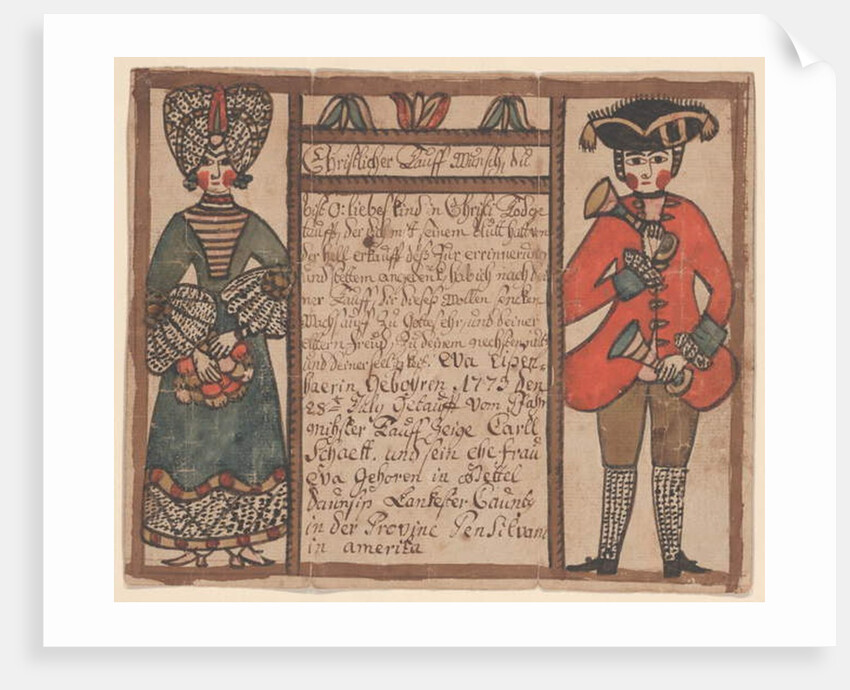 Christlicher Tauff Wunsch, du
bist O: liebes kind in Christi Todge
taufft, der dich mit seinem blutt hatt von
der hell erkaufft deß zur errinnerung
und bettem angedenck, hab ich nach dei
ner Tauff, dir dieses wollen sencken
Wachs auff zu Gottes ehr, und deiner
eltern freud, zu deinem nechsten nutz
und deiner seeligkeit. Eva Eipen-
haerin Gebohren 1773 den
28t July Getaufft Vom
Tauff Zeige Carll
Schaeff. und sein ehe frau
Eva Gehoren in Bettel
daunsip Lankester Caunty
in der Provinc Pensilvani
in amerika